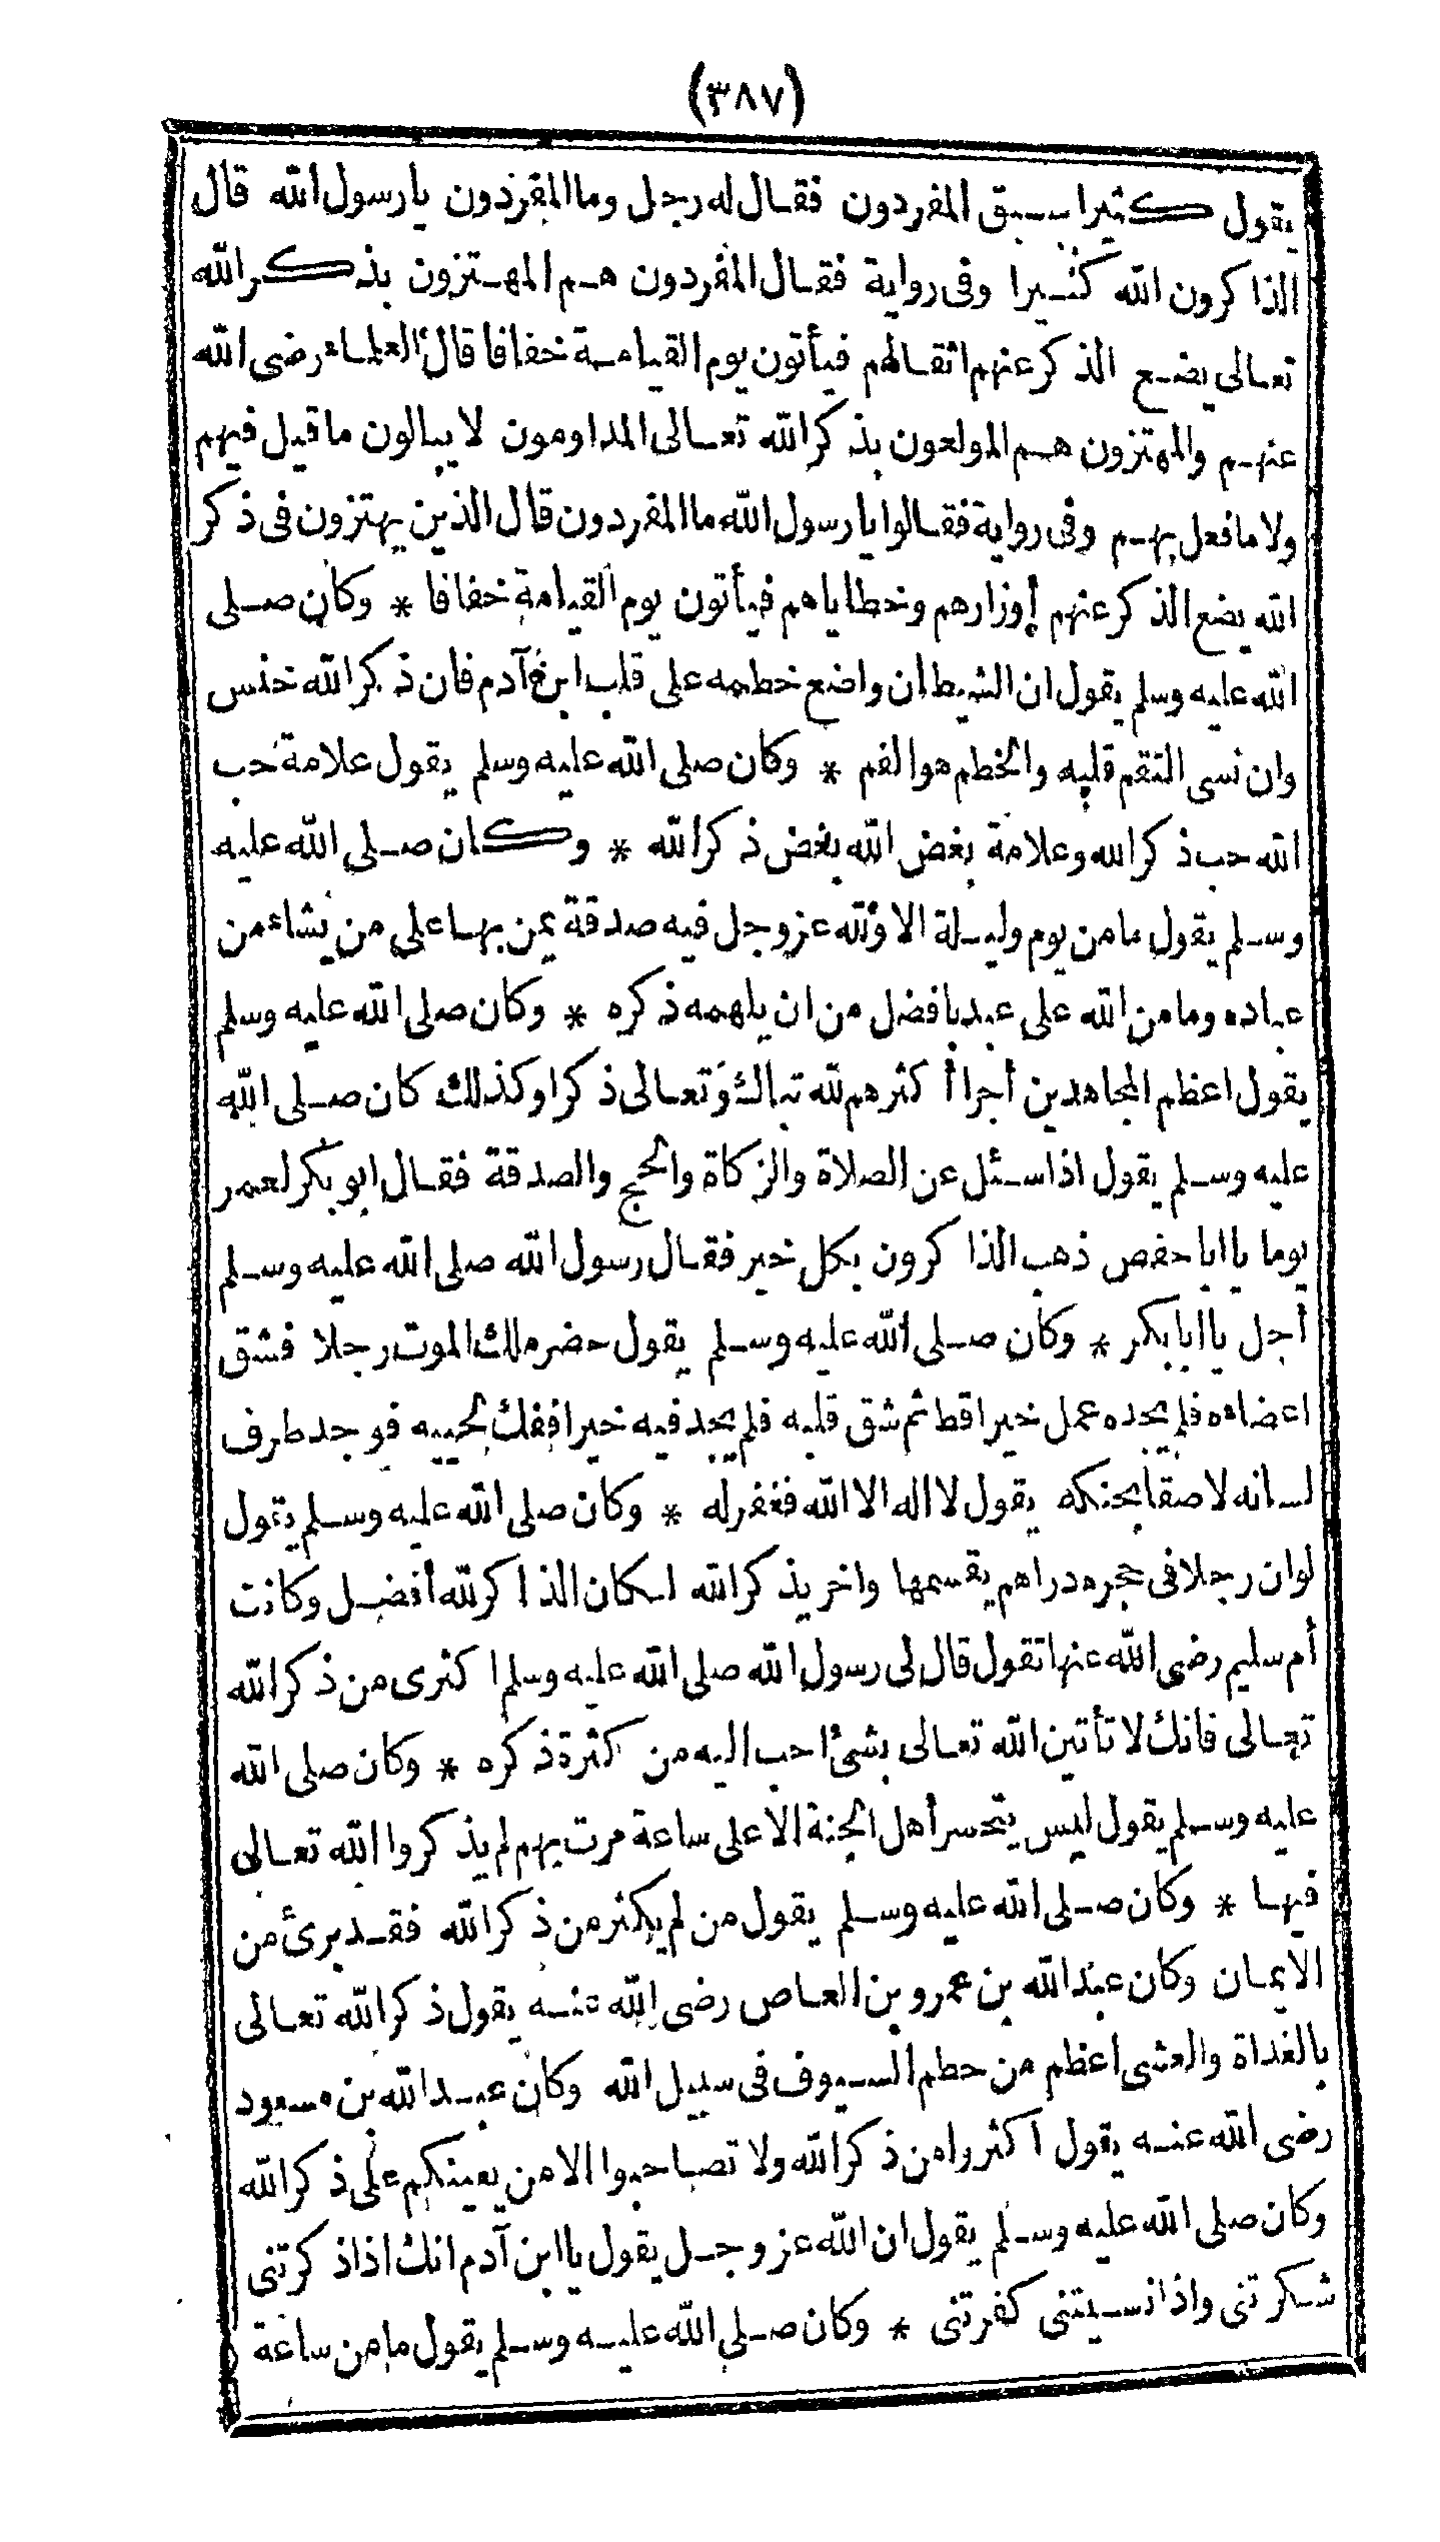 (٣٨٧)
يقول كثيرا سبق المفردون فقال له رجل وما المفردون يا رسول الله قال
الذاكرون الله كثيرا وفى رواية فقال المفردون هم المهتزون بذكر الله
تعالى يضع الذكر عنهم اثقالهم فيأتون يوم القيامة خفافا قال العلماء رضى الله
عنهم والمهتزون هم المولعون بذكر الله تعالى المداومون لا يبالون ما قيل فيهم
ولا ما فعل بهم وفى رواية فقالوا يا رسول الله ما المفردون قال الذين يهتزون فى ذكر
الله يضع الذكر عنهم أوزارهم وخطاياهم فيأتون يوم القيامة خفافا * وكان صلى
الله عليه وسلم يقول ان الشيطان واضع خطمه على قلب ابن آدم فان ذكر الله خنس
وان نسى التقم قلبه والخطم هو الفم * وكان صلى الله عليه وسلم يقول علامة حب
الله حب ذكر الله وعلامة بغض الله بغض ذكر الله * وكان صلى الله عليه
وسلم يقول ما من يوم وليلة الا ولله عز وجل فيه صدقة يمن بها على من يشاء من
عباده وما من الله على عبد بافضل من ان يلهمه ذكره * وكان صلى الله عليه وسلم
يقول اعظم المجاهدين أجرا أكثرهم لله تبارك وتعالى ذكرا وكذلك كان صلى الله
عليه وسلم يقول اذا سئل عن الصلاة والزكاة والحج والصدقة فقال ابو بكر لعمر
يوما يا ابا حفص ذهب الذاكرون بكل خير فقال رسول الله صلى الله عليه وسلم
أجل يا ابا بكر * وكان صلى الله عليه وسلم يقول حضر ملك الموت رجلا فشق
اعضاءه فلم يجده عمل خيرا قط ثم شق قلبه فلم يجد فيه خيرا ففك لحييه فوجد طرف
لسانه لاصقا بحنكه يقول لا اله الا الله فغفر له * وكان صلى الله عليه وسلم يقول
لو ان رجلا فى حجره دراهم يقسمها واخر يذكر الله لكان الذاكر لله أفضل وكانت
أم سليم رضى الله عنها تقول قال لى رسول الله صلى الله عليه وسلم اكثرى من ذكر الله
تعالى فانك لا تأتين الله تعالى بشئ احب اليه من كثرة ذكره * وكان صلى الله
عليه وسلم يقول ليس يتحسر أهل الجنة الا على ساعة مرت بهم لم يذكروا الله تعالى
فيها * وكان صلى الله عليه وسلم يقول من لم يكثر من ذكر الله فقد برئ من
الايمان وكان عبد الله بن عمرو بن العاص رضى الله عنه يقول ذكر الله تعالى
بالغداة والعشى اعظم من حطم السيوف فى سبيل الله وكان عبد الله بن مسعود
رضى الله عنه يقول اكثروا من ذكر الله ولا تصاحبوا الا من يعينكم على ذكر الله
وكان صلى الله عليه وسلم يقول ان الله عز وجل يقول يا ابن آدم انك اذا ذكرتنى
شكرتنى واذا نسيتنى كفرتنى * وكان صلى الله عليه وسلم يقول ما من ساعة